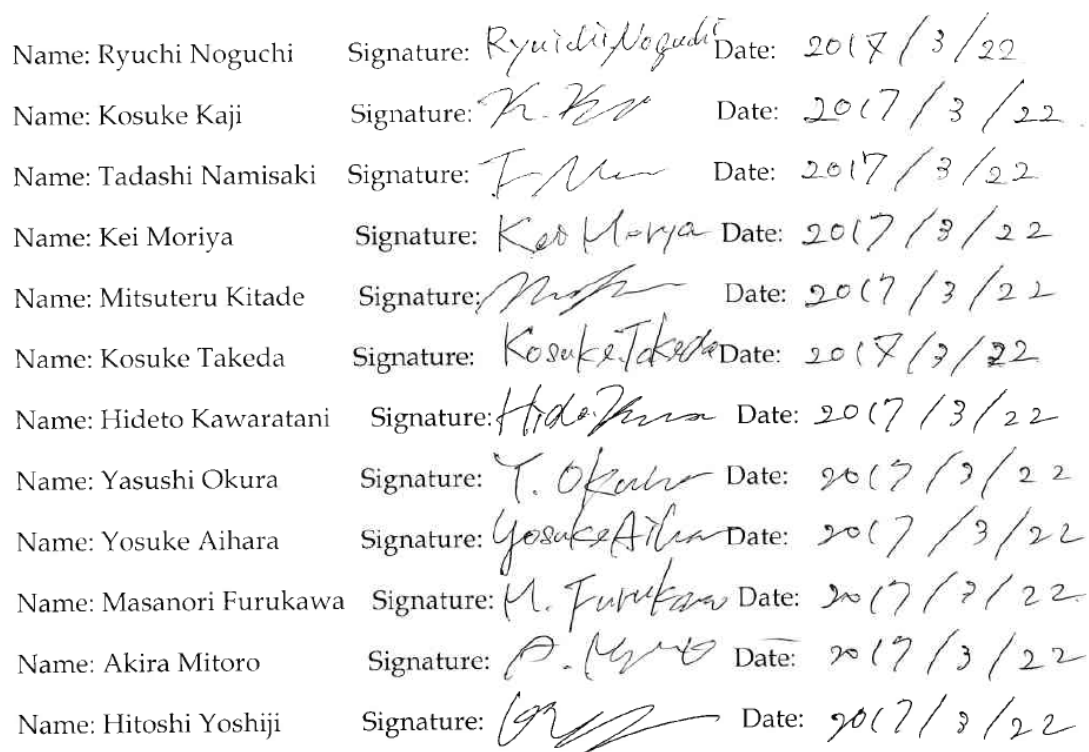 Name: Ryuchi Noguchi Signature: Ryuichi Noguchi Date: 2017/3/22
Name: Kosuke Kaji Signature: K. Date: 2017/3/22
Name: Tadashi Namisaki Signature: T. Date: 2017/3/22
Name: Kei Moriya Signature: Kei Moriya Date: 2017/3/22
Name: Mitsuteru Kitade Signature: Date: 2017/3/22
Name: Kosuke Takeda Signature: Kosuke Takeda Date: 2017/3/22
Name: Hideto Kawaratani Signature: Hide Date: 2017/3/22
Name: Yasushi Okura Signature: Y. Okura Date: 2017/3/22
Name: Yosuke Aihara Signature: Yosuke Aihara Date: 2017/3/22
Name: Masanori Furukawa Signature: M. Furukawa Date: 2017/3/22
Name: Akira Mitoro Signature: A. Date: 2017/3/22
Name: Hitoshi Yoshiji Signature: Date: 2017/3/22